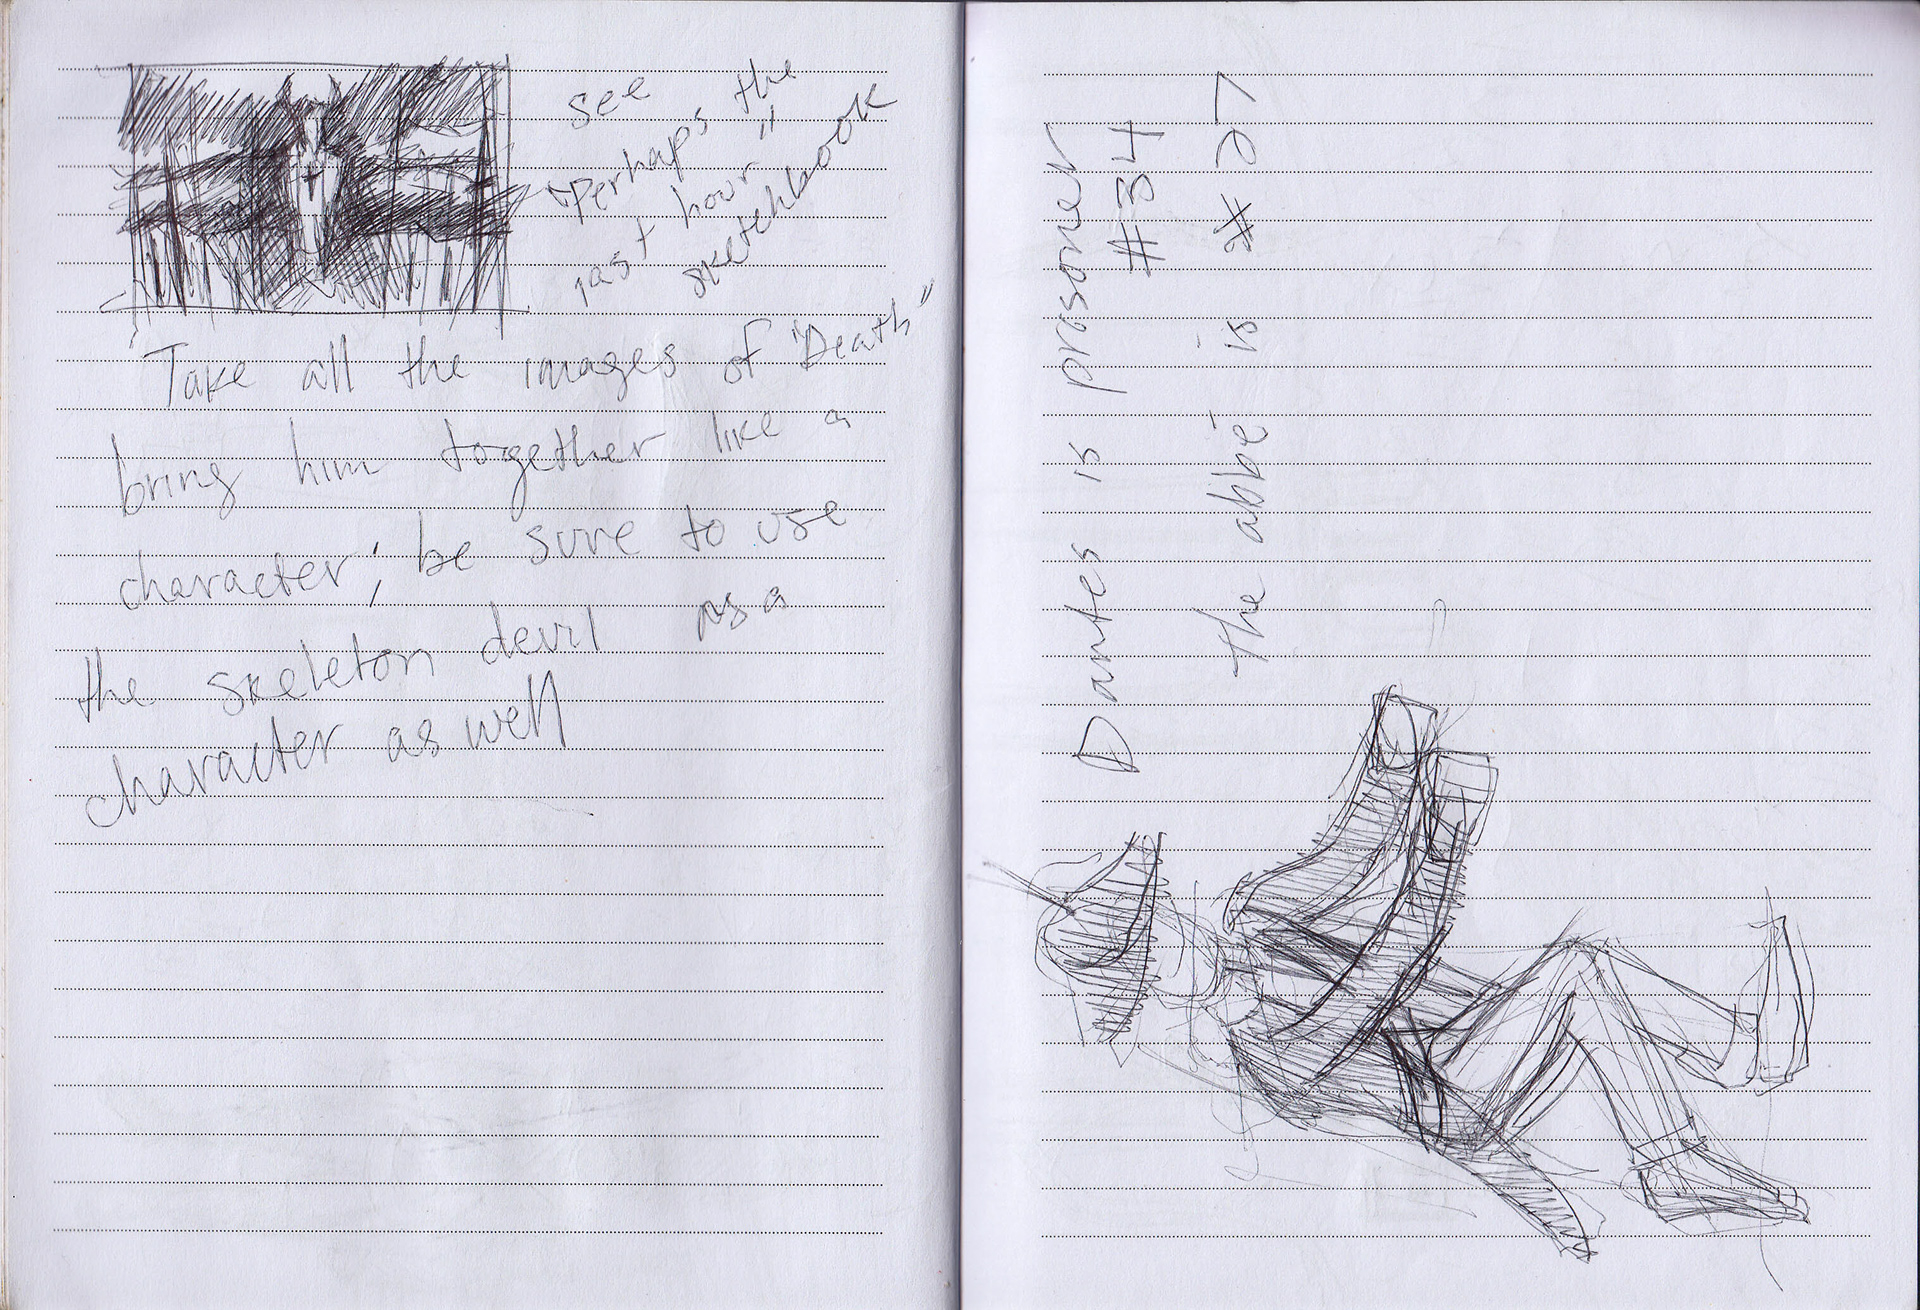 see
"Perhaps the
last hour"
sketchbook
Take all the images of "Death"
bring him together like a
character; be sure to use
the skeleton devil as a
character as well
Dantes is prisoner
#34
the abbé is #27